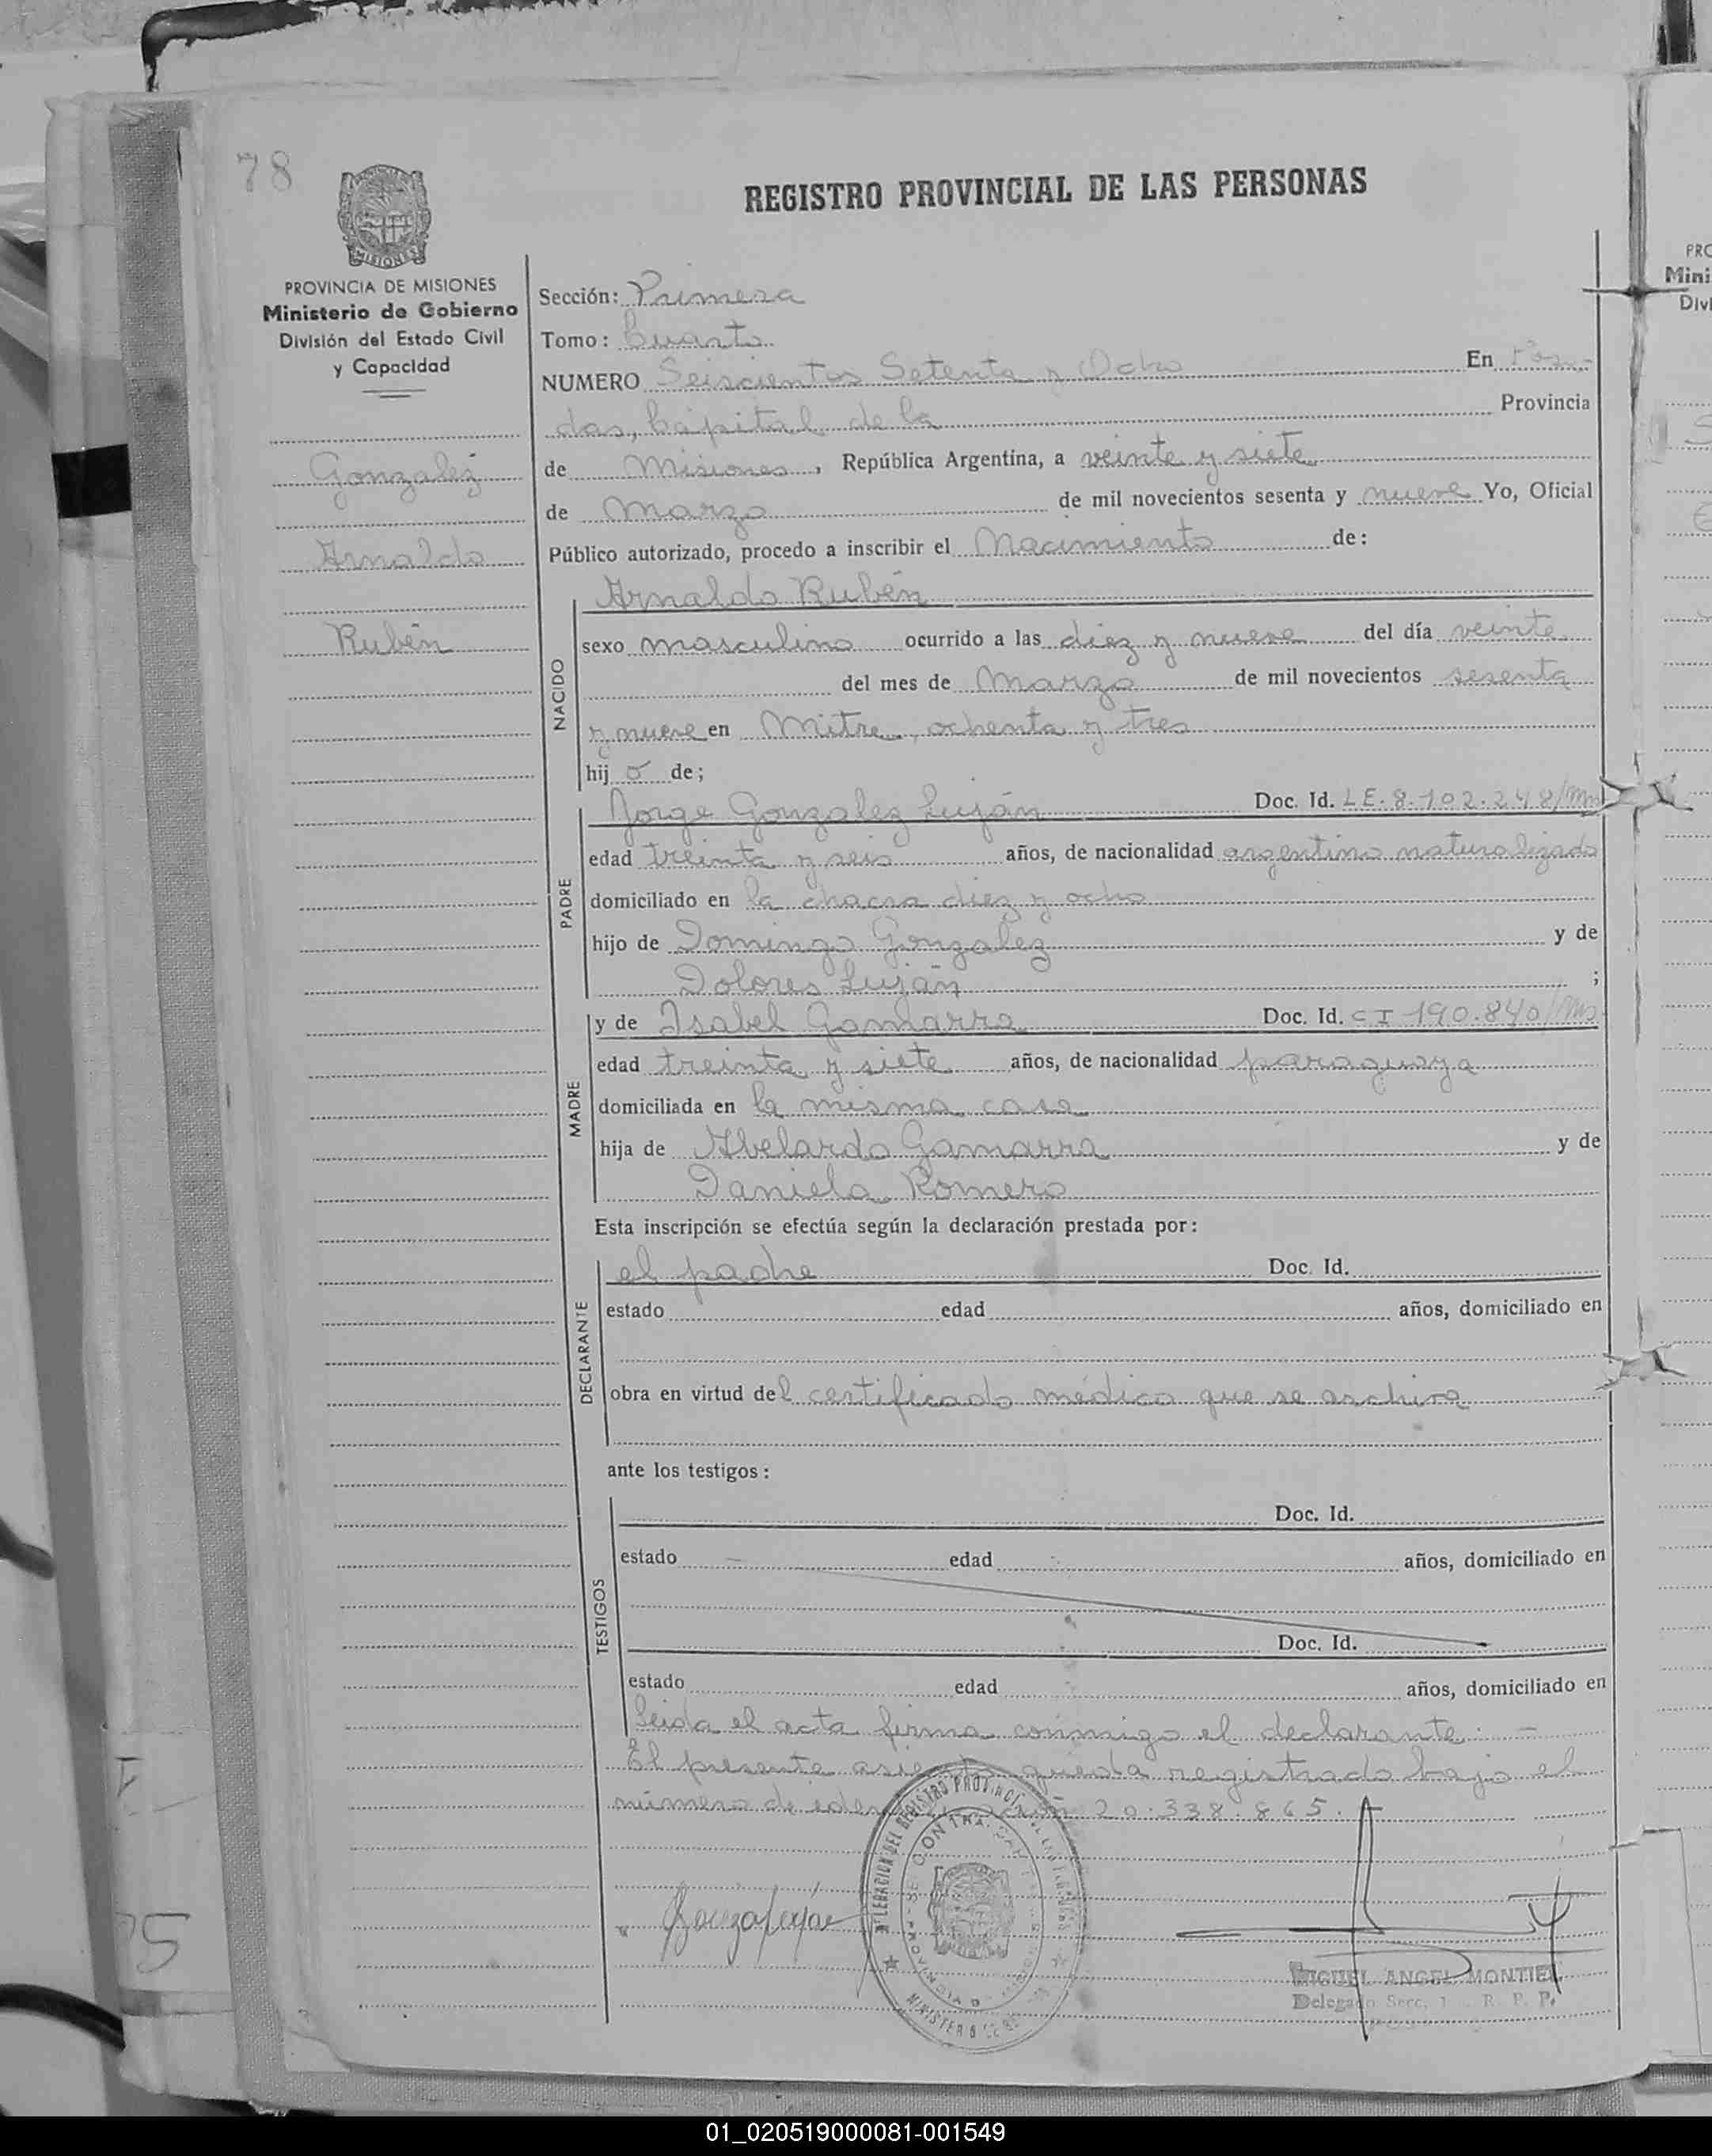 78
REGISTRO PROVINCIAL DE LAS PERSONAS
MISIONES
PROVINCIA DE MISIONES
Ministerio de Gobierno
División del Estado Civil
y Capacidad
Gonzalez
Arnaldo
Rubén
Sección: Primera
Tomo: Cuarto
NUMERO Seiscientos Setenta y Ocho En Posa-
das, Capital de la Provincia
de Misiones, República Argentina, a veinte y siete
de Marzo de mil novecientos sesenta y nueve Yo, Oficial
Público autorizado, procedo a inscribir el Nacimiento de:
NACIDO
Arnaldo Rubén
sexo masculino ocurrido a las diez y nueve del día veinte
del mes de Marzo de mil novecientos sesenta
y nueve en Mitre, ochenta y tres
hijo de;
PADRE
Jorge Gonzalez Luján Doc. Id. LE. 8.102.248/Mns
edad treinta y seis años, de nacionalidad argentino naturalizado
domiciliado en la chacra diez y ocho
hijo de Domingo Gonzalez y de
Dolores Luján ;
MADRE
y de Isabel Gamarra Doc. Id. CI 190.840/Mns
edad treinta y siete años, de nacionalidad paraguaya
domiciliada en la misma casa
hija de Abelardo Gamarra y de
Daniela Romero
Esta inscripción se efectúa según la declaración prestada por:
DECLARANTE
el padre Doc. Id.
estado edad años, domiciliado en
obra en virtud del certificado médico que se archiva
ante los testigos:
TESTIGOS
Doc. Id.
estado edad años, domiciliado en
Doc. Id.
estado edad años, domiciliado en
Leida el acta firma conmigo el declarante. -
El presente asiento queda registrado bajo el
número de 20.338.865.-
MIGUEL ANGEL MONTIEL
Delegado Secc. 1 R. P. P.
PRO
Mini
Divi
01_020519000081-001549